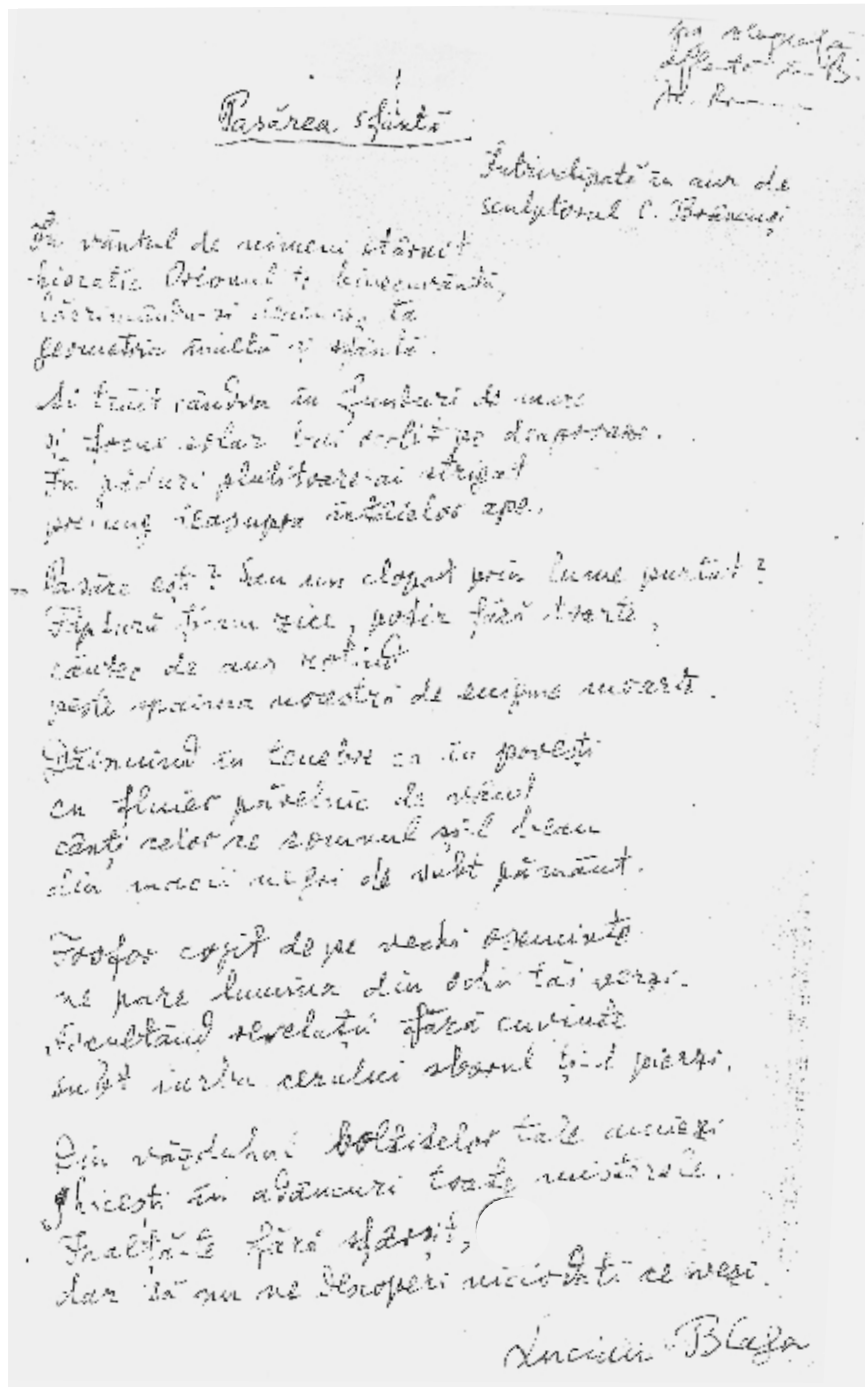 Pasărea sfântă
Întruchipată în aur de
sculptorul C. Brâncuși
În vântul de nimeni stârnit
hieratic Orionul te binecuvântă,
lăcrimându-și deasupra ta
geometria înaltă și sfântă.
Ai trăit cândva în funduri de mare
și focul solar l-ai ocolit pe de aproape.
În păduri plutitoare-ai strigat
prelung deasupra întâielor ape.
Pasăre ești? Sau un clopot prin lume purtat?
Făptură ți-am zice, potir fără toarte,
cântec de aur rotind
peste spaima noastră de enigme moarte.
Dăinuind în tenebre ca în povești
cu fluier părelnic de vânt
cânți celor ce somnul și-l beau
din macii negri de subt pământ.
Fosfor cojit de pe vechi oseminte
ne pare lumina din ochii tăi verzi.
Ascultând revelații fără cuvinte
subt iarba cerului zborul ți-l pierzi.
Din văzduhul boltitelor tale amiezi
ghicești în adâncuri toate misterele.
Înalță-te fără sfârșit,
dar să nu ne descoperi niciodată ce vezi.
Lucian Blaga